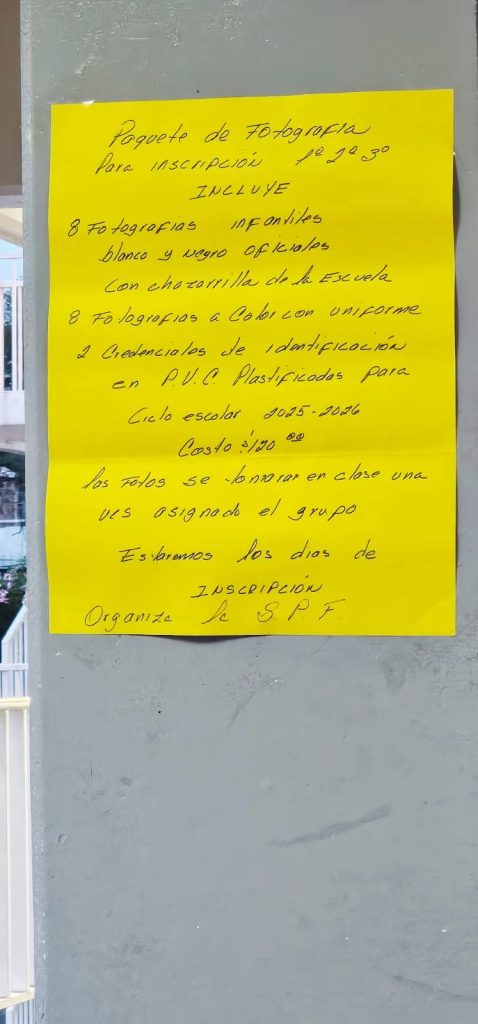 Paquete de Fotografia
Para inscripción 1º 2º 3º
INCLUYE
8 Fotografias infantiles
blanco y negro oficiales
con chazarrilla de la Escuela
8 Fotografias a Color con uniforme
2 Credenciales de identificación
en P.V.C. Plastificadas para
Ciclo escolar 2025-2026
Costo $120 00
las Fotos se tomaran en clase una
ves asignado el grupo
Estaremos los dias de
INSCRIPCIÓN
Organiza la S. P. F.